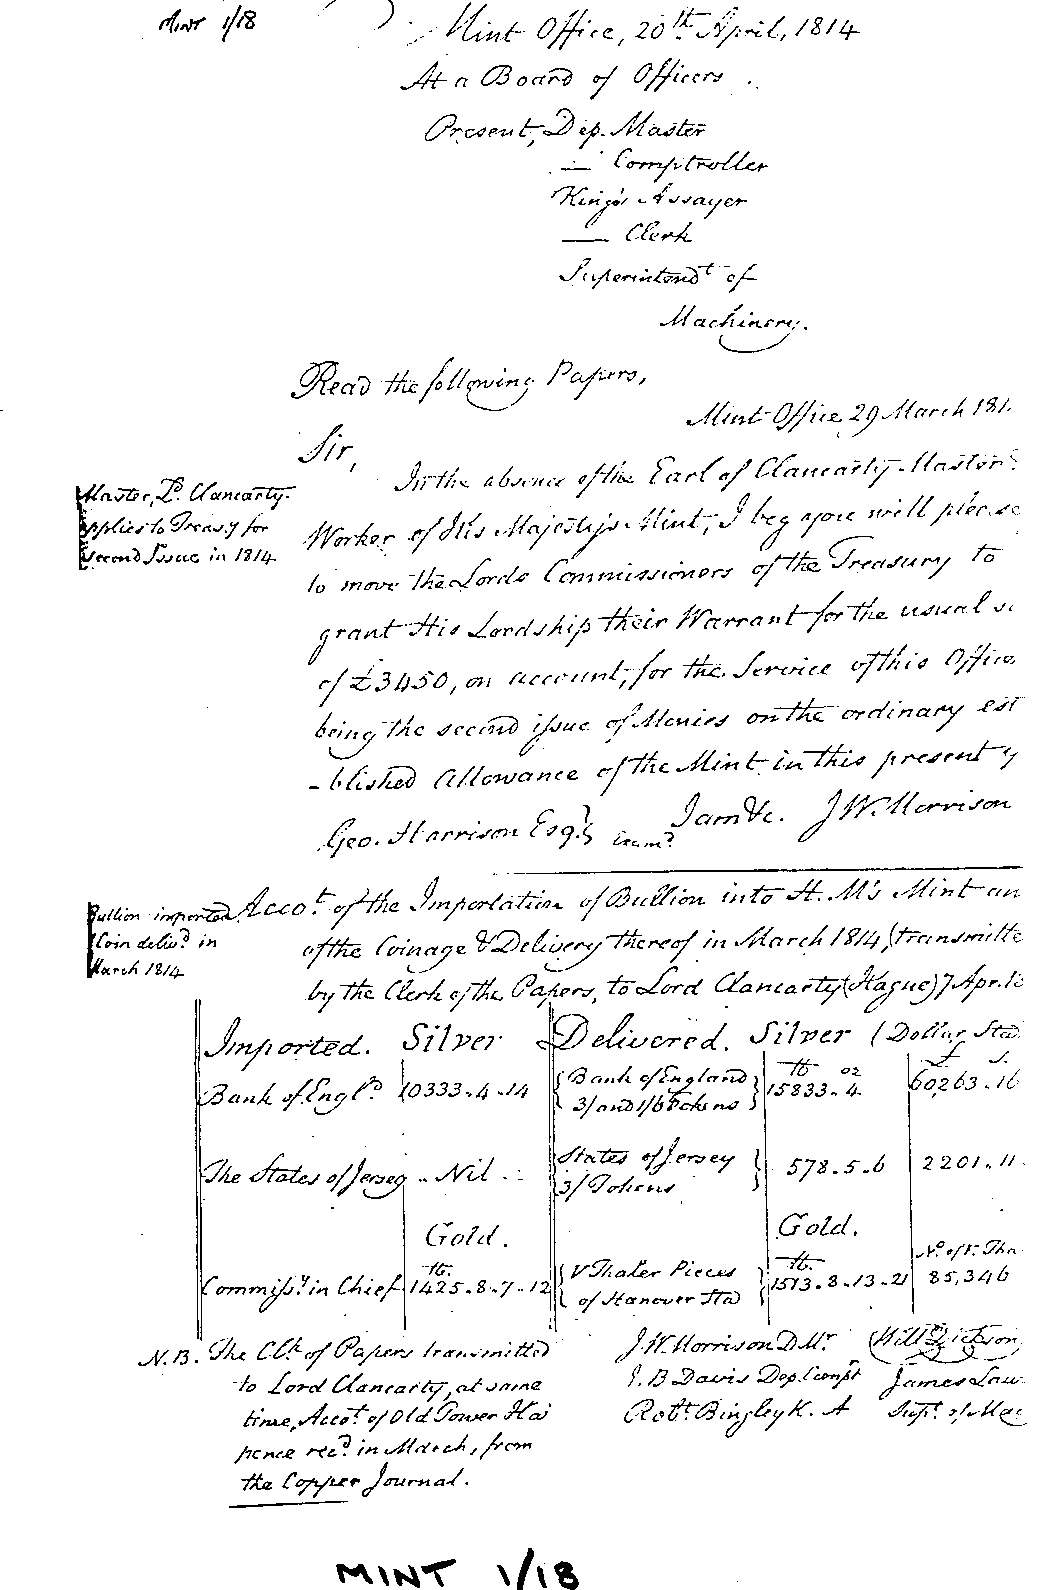 Mint 1/18
Mint Office, 20th April, 1814
At a Board of Officers
Present, Dep. Master
— Comptroller
King's Assayer
— Clerk
Superintendt of
Machinery.
Read the following Papers,
Mint Office 29 March 181
Sir,
In the absence of the Earl of Clancarty Master
Master, Ld. Clancarty
applies to Treasy for
second Issue in 1814
Worker of His Majesty's Mint, I beg you will please
to move the Lords Commissioners of the Treasury to
grant His Lordship their Warrant for the usual s
of £3450, on account, for the Service of this Office
being the second issue of Monies on the ordinary est
-blished Allowance of the Mint in this present y
Geo. Harrison Esqr. } Examd. I am &c. J.W. Morrison
Bullion imported
Coin delivd in
March 1814
Accot. of the Importation of Bullion into H. M's Mint an
of the Coinage & Delivery thereof in March 1814, (transmitte
by the Clerk of the Papers, to Lord Clancarty (Hague) 7 Apr. 18
Imported. Silver Delivered. Silver (Dollar Sta
lb oz £ s.
Bank of Engld 10333.4.14 { Bank of England 3/ and 1/6 Tokens } 15833.4. 60,263.16
The States of Jersey .. Nil .. { States of Jersey 3/ Tokens } 578.5.6 2201.11.
Gold. Gold.
lb. lb. No. of V. Tha
Commissy in Chief 1425.8.7.12 { V Thaler Pieces of Hanover Sta } 1513.8.13.21 85,346
N.B. The Clk of Papers transmitted
to Lord Clancarty, at same
time, Accot. of Old Tower Ha
pence recd. in March, from
the Copper Journal.
J.W. Morrison D. Mr.
J. B Davis Dep. Compt
Robt. Bingley K. A
Willm Dickson,
James Law
Supt. of Mac
MINT 1/18